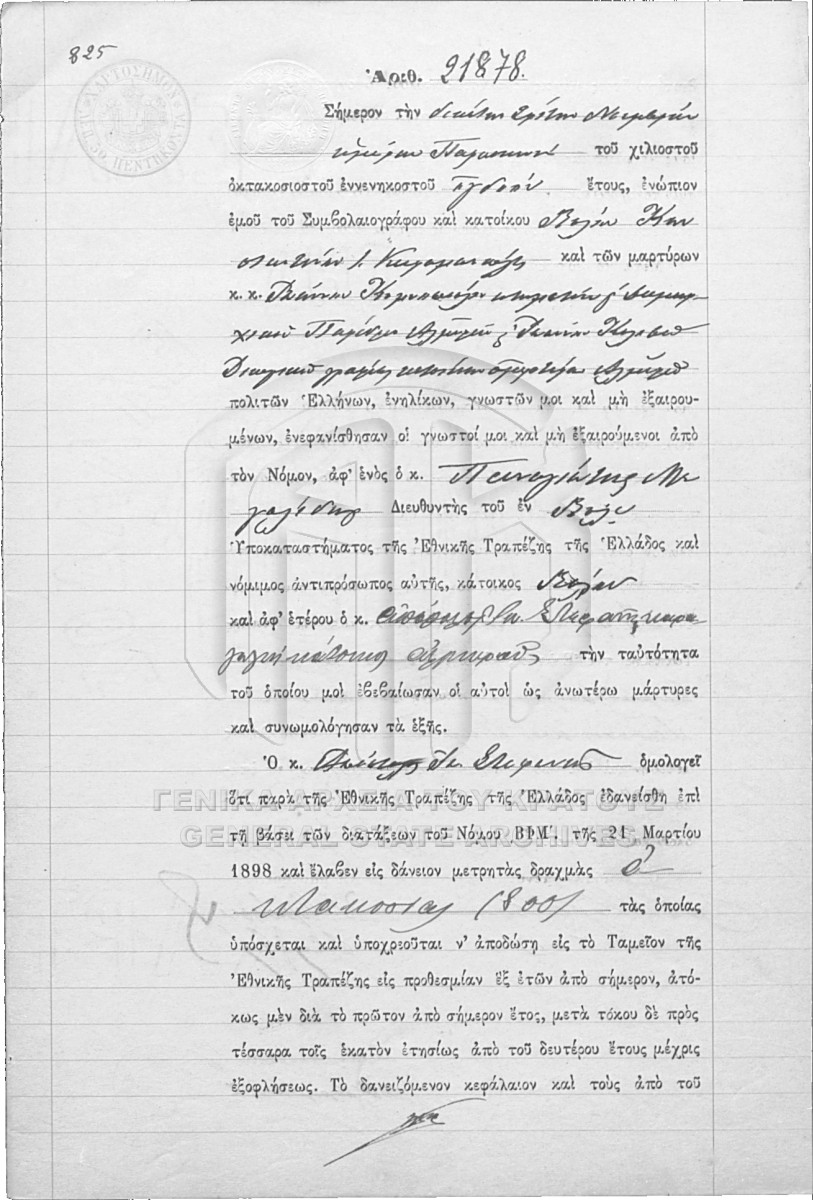 825
Ἀριθ. 21878.
Σήμερον τὴν δεκάτην τρίτην Νοεμβρίου
ἡμέραν Παρασκευὴν τοῦ χιλιοστοῦ
ὀκτακοσιοστοῦ ἐννενηκοστοῦ ὀγδόου ἔτους, ἐνώπιον
ἐμοῦ τοῦ Συμβολαιογράφου καὶ κατοίκου Βόλου Κων
σταντίνου καὶ τῶν μαρτύρων
κ. κ. Ἰωάννου
Ἁλμυροῦ
Ἁλμυροῦ
πολιτῶν Ἑλλήνων, ἐνηλίκων, γνωστῶν μοι καὶ μὴ ἐξαιρου-
μένων, ἐνεφανίσθησαν οἱ γνωστοί μοι καὶ μὴ ἐξαιρούμενοι ἀπὸ
τὸν Νόμον, ἀφ' ἑνὸς ὁ κ. Παναγιώτης Με
γαλίδης Διευθυντὴς τοῦ ἐν Βόλῳ
Ὑποκαταστήματος τῆς Ἐθνικῆς Τραπέζης τῆς Ἑλλάδος καὶ
νόμιμος ἀντιπρόσωπος αὐτῆς, κάτοικος Βόλου
καὶ ἀφ' ἑτέρου ὁ κ. Ἀπόστολος
κάτοικος Ἁλμυροῦ τὴν ταὐτότητα
τοῦ ὁποίου μοὶ ἐβεβαίωσαν οἱ αὐτοὶ ὡς ἀνωτέρω μάρτυρες
καὶ συνωμολόγησαν τὰ ἑξῆς.
Ὁ κ. Ἀπόστολος ὁμολογεῖ
ΓΕΝΙΚΑ ΑΡΧΕΙΑ ΤΟΥ ΚΡΑΤΟΥΣ
ὅτι παρὰ τῆς Ἐθνικῆς Τραπέζης τῆς Ἑλλάδος ἐδανείσθη ἐπὶ
GENERAL STATE ARCHIVES
τῇ βάσει τῶν διατάξεων τοῦ Νόμου ΒΦΜʹ. τῆς 21 Μαρτίου
1898 καὶ ἔλαβεν εἰς δάνειον μετρητὰς δραχμὰς ὀ
κτακοσίας (800) τὰς ὁποίας
ὑπόσχεται καὶ ὑποχρεοῦται ν' ἀποδώσῃ εἰς τὸ Ταμεῖον τῆς
Ἐθνικῆς Τραπέζης εἰς προθεσμίαν ἓξ ἐτῶν ἀπὸ σήμερον, ἀτό-
κως μὲν διὰ τὸ πρῶτον ἀπὸ σήμερον ἔτος, μετὰ τόκου δὲ πρὸς
τέσσαρα τοῖς ἑκατὸν ἐτησίως ἀπὸ τοῦ δευτέρου ἔτους μέχρις
ἐξοφλήσεως. Τὸ δανειζόμενον κεφάλαιον καὶ τοὺς ἀπὸ τοῦ